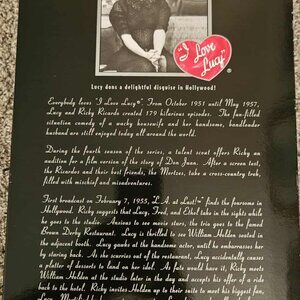 "I Love Lucy"
Lucy dons a delightful disguise in Hollywood!
Everybody loves "I Love Lucy®". From October 1951 until May 1957,
Lucy and Ricky Ricardo created 179 hilarious episodes. The fun-filled
situation comedy of a wacky housewife and her handsome, bandleader
husband are still enjoyed today all around the world.
During the fourth season of the series, a talent scout offers Ricky an
audition for a film version of the story of Don Juan. After a screen test,
the Ricardos and their best friends, the Mertzes, take a cross-country trek,
filled with mischief and misadventures.
First broadcast on February 7, 1955, L.A. at Last!™ finds the foursome in
Hollywood. Ricky suggests that Lucy, Fred, and Ethel take in the sights while
he goes to the studio. Anxious to see movie stars, the trio goes to the famed
Brown Derby Restaurant. Lucy is thrilled to see William Holden seated in the
adjacent booth. Lucy gawks at the handsome actor, until he embarrasses her
by staring back. As she scurries out of the restaurant, Lucy accidentally causes
a platter of desserts to land on her idol. As fate would have it, Ricky meets
William Holden at the studio later in the day and accepts his offer of a ride
back to the hotel. Ricky invites Holden up to their suite to meet his biggest fan,